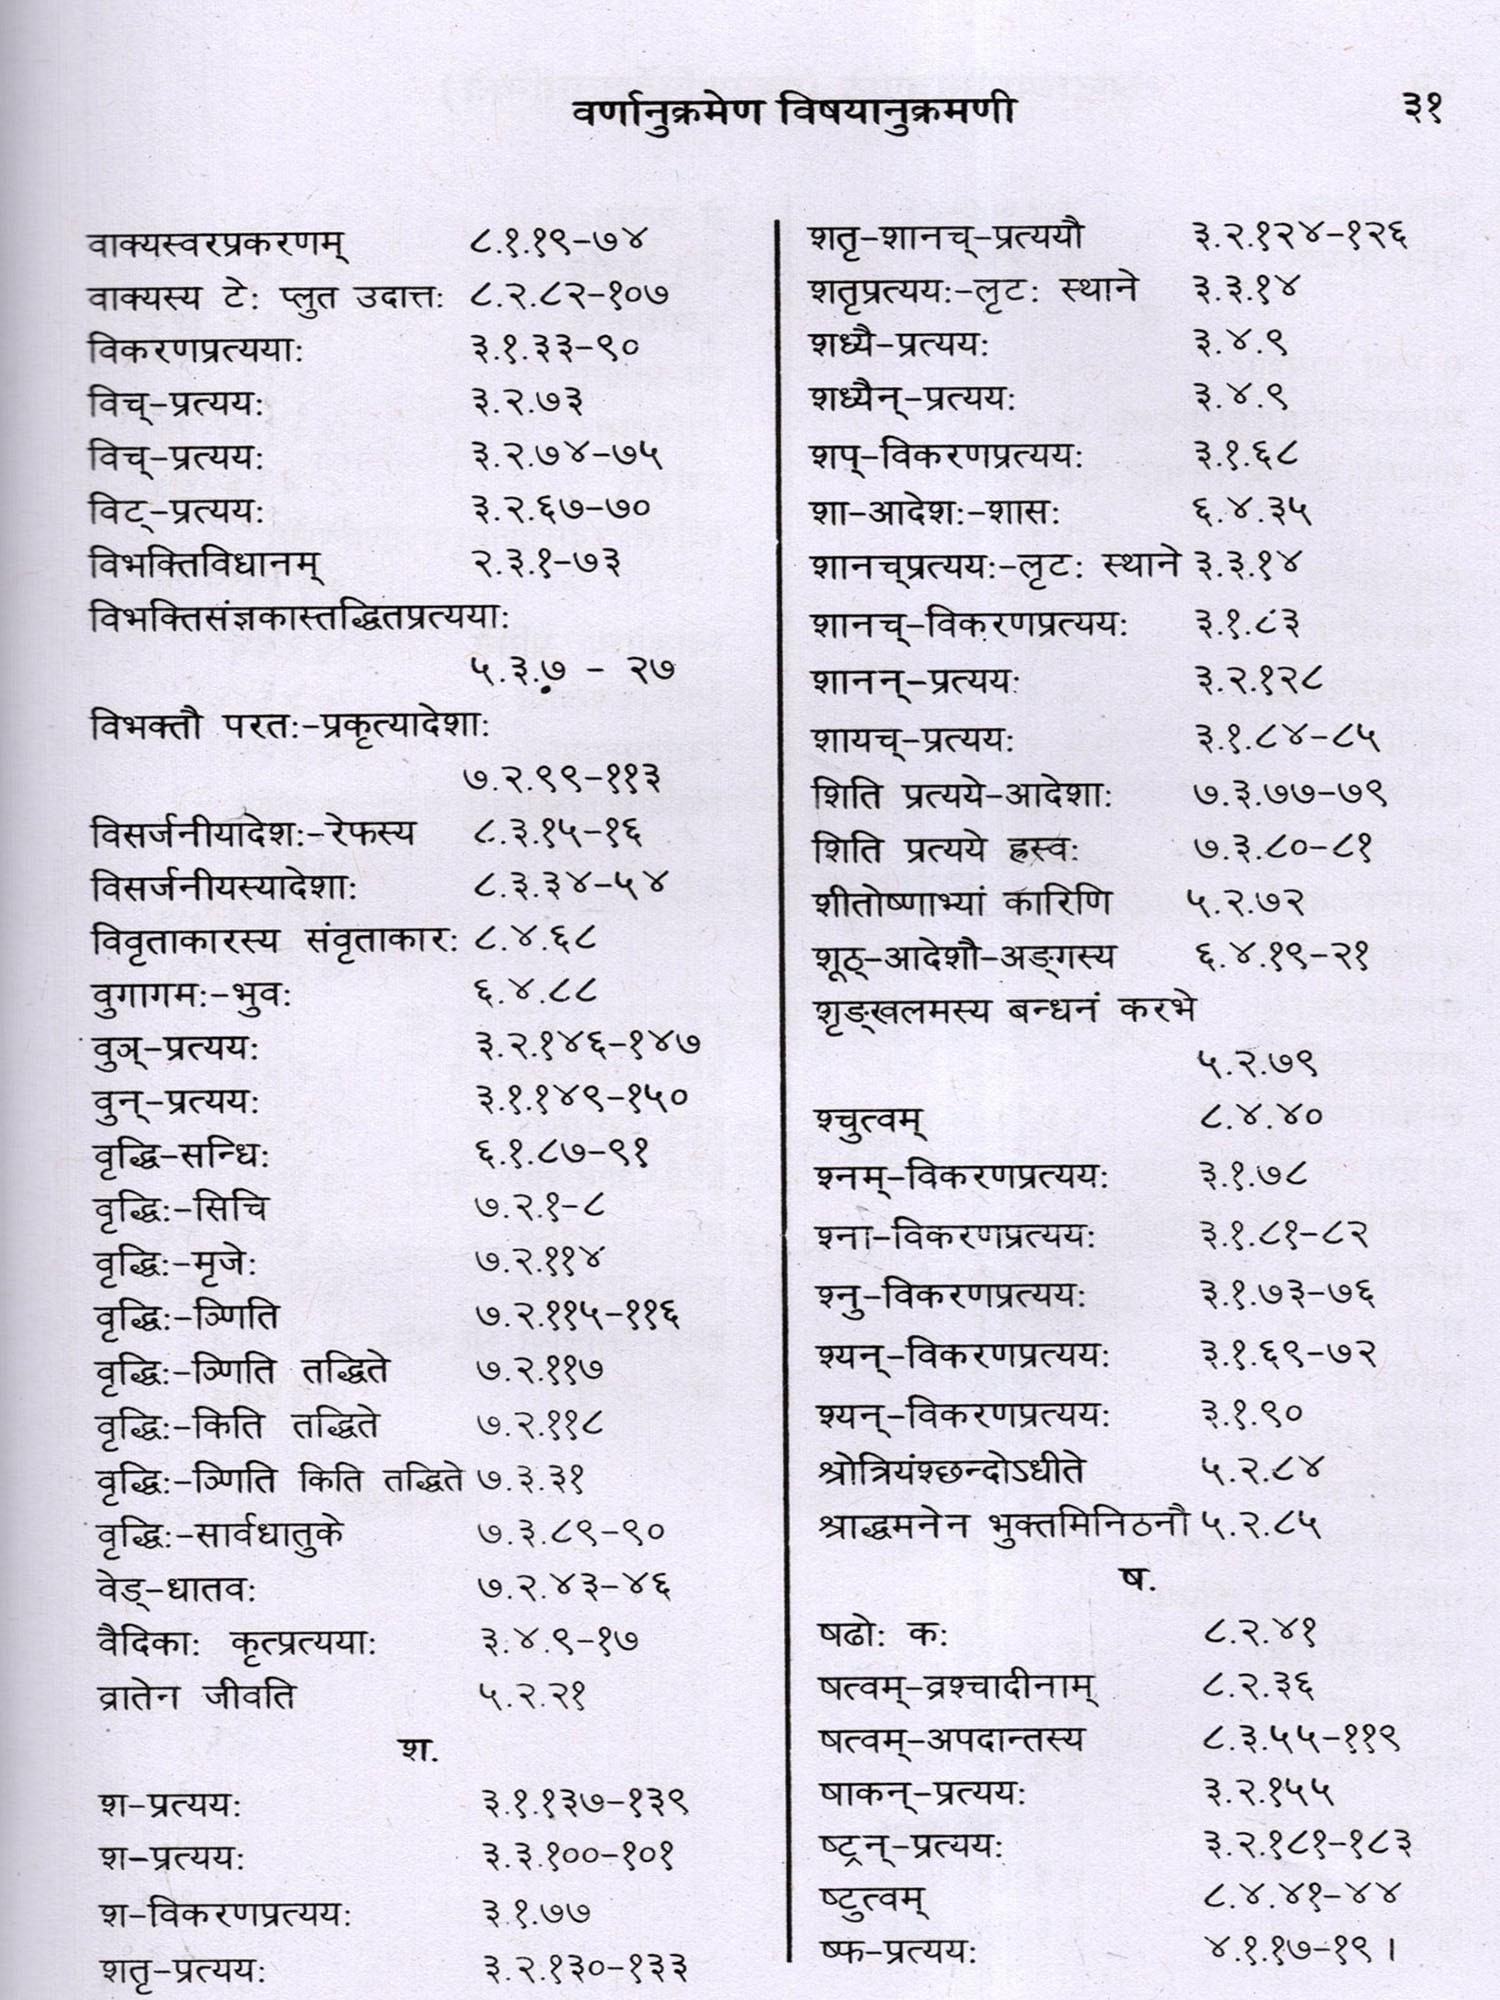 वर्णानुक्रमेण विषयानुक्रमणी ३१
वाक्यस्वरप्रकरणम् ८.१.१९-७४
वाक्यस्य टेः प्लुत उदात्तः ८.२.८२-१०७
विकरणप्रत्ययाः ३.१.३३-९०
विच्-प्रत्ययः ३.२.७३
विच्-प्रत्ययः ३.२.७४-७५
विट्-प्रत्ययः ३.२.६७-७०
विभक्तिविधानम् २.३.१-७३
विभक्तिसंज्ञकास्तद्धितप्रत्ययाः
५.३.७ - २७
विभक्तौ परतः-प्रकृत्यादेशाः
७.२.९९-११३
विसर्जनीयादेशः-रेफस्य ८.३.१५-१६
विसर्जनीयस्यादेशाः ८.३.३४-५४
विवृताकारस्य संवृताकारः ८.४.६८
वुगागमः-भुवः ६.४.८८
वुञ्-प्रत्ययः ३.२.१४६-१४७
वुन्-प्रत्ययः ३.१.१४९-१५०
वृद्धि-सन्धिः ६.१.८७-९१
वृद्धिः-सिचि ७.२.१-८
वृद्धिः-मृजेः ७.२.११४
वृद्धिः-ञ्णिति ७.२.११५-११६
वृद्धिः-ञ्णिति तद्धिते ७.२.११७
वृद्धिः-किति तद्धिते ७.२.११८
वृद्धिः-ञ्णिति किति तद्धिते ७.३.३१
वृद्धिः-सार्वधातुके ७.३.८९-९०
वेड्-धातवः ७.२.४३-४६
वैदिकाः कृत्प्रत्ययाः ३.४.९-१७
व्रातेन जीवति ५.२.२१
श.
श-प्रत्ययः ३.१.१३७-१३९
श-प्रत्ययः ३.३.१००-१०१
श-विकरणप्रत्ययः ३.१.७७
शतृ-प्रत्ययः ३.२.१३०-१३३
शतृ-शानच्-प्रत्ययौ ३.२.१२४-१२६
शतृप्रत्ययः-लृटः स्थाने ३.३.१४
शध्यै-प्रत्ययः ३.४.९
शध्यैन्-प्रत्ययः ३.४.९
शप्-विकरणप्रत्ययः ३.१.६८
शा-आदेशः-शासः ६.४.३५
शानच्प्रत्ययः-लृटः स्थाने ३.३.१४
शानच्-विकरणप्रत्ययः ३.१.८३
शानन्-प्रत्ययः ३.२.१२८
शायच्-प्रत्ययः ३.१.८४-८५
शिति प्रत्यये-आदेशाः ७.३.७७-७९
शिति प्रत्यये ह्रस्वः ७.३.८०-८१
शीतोष्णाभ्यां कारिणि ५.२.७२
शूठ्-आदेशौ-अङ्गस्य ६.४.१९-२१
शृङ्खलमस्य बन्धनं करभे
५.२.७९
श्चुत्वम् ८.४.४०
श्नम्-विकरणप्रत्ययः ३.१.७८
श्ना-विकरणप्रत्ययः ३.१.८१-८२
श्नु-विकरणप्रत्ययः ३.१.७३-७६
श्यन्-विकरणप्रत्ययः ३.१.६९-७२
श्यन्-विकरणप्रत्ययः ३.१.९०
श्रोत्रियंश्छन्दोऽधीते ५.२.८४
श्राद्धमनेन भुक्तमिनिठनौ ५.२.८५
ष.
षढोः कः ८.२.४१
षत्वम्-व्रश्चादीनाम् ८.२.३६
षत्वम्-अपदान्तस्य ८.३.५५-११९
षाकन्-प्रत्ययः ३.२.१५५
ष्ट्रन्-प्रत्ययः ३.२.१८१-१८३
ष्टुत्वम् ८.४.४१-४४
ष्फ-प्रत्ययः ४.१.१७-१९ ।